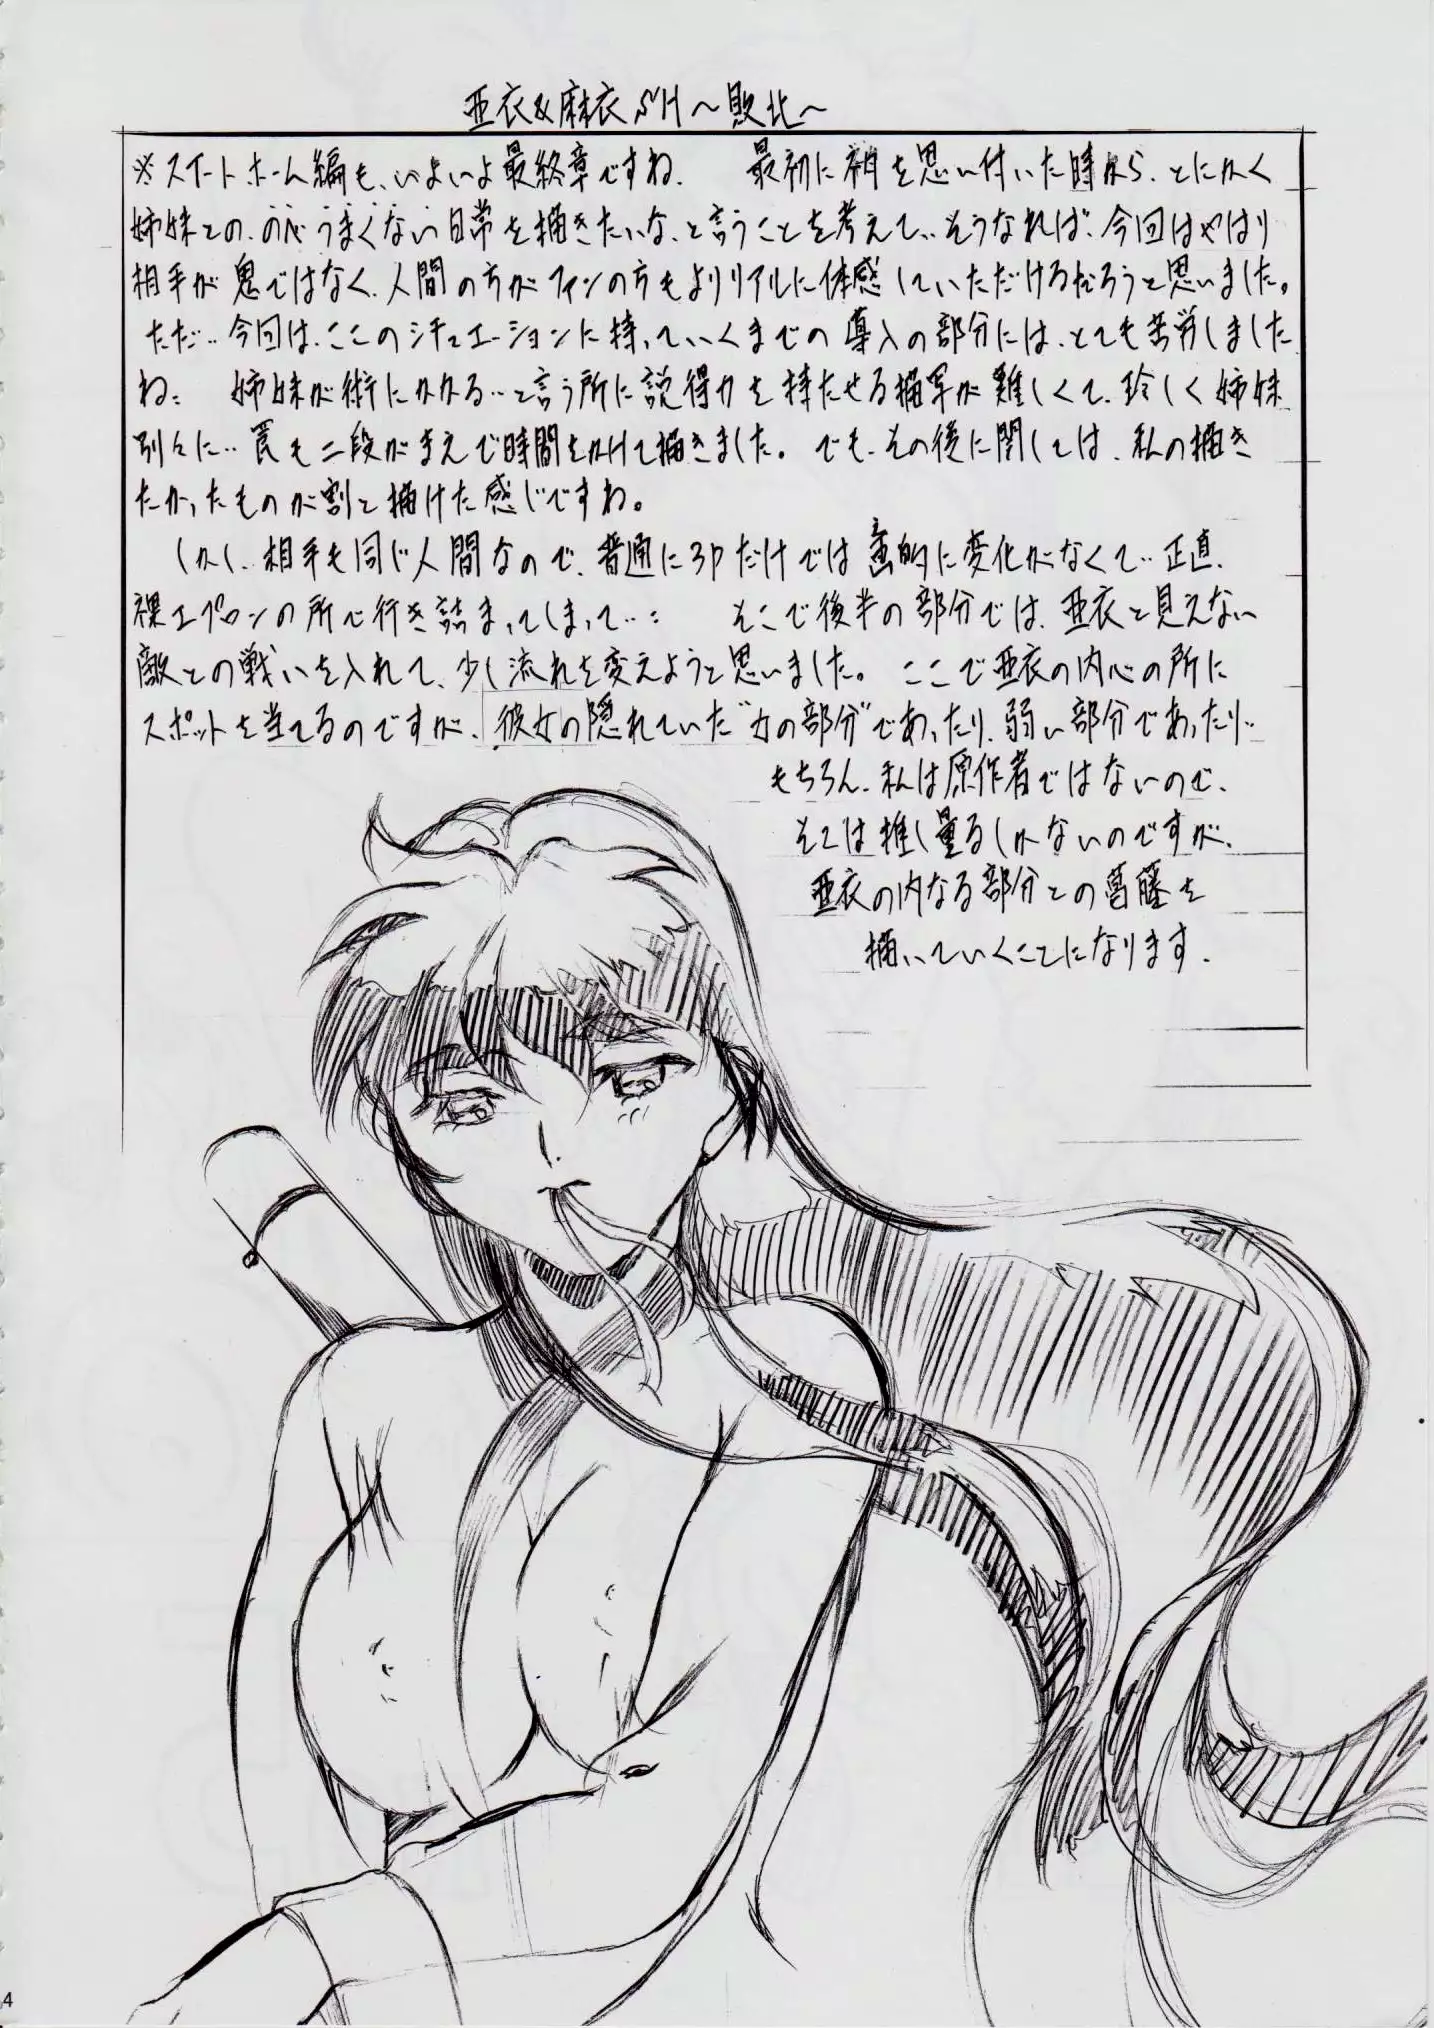 亜衣&麻衣SH~敗北~
※スイートホーム編も、いよいよ最終章ですね. 最初に を思い付いた時から、とにかく
姉妹との、 うまくない日常を描きたいな、と言うことを考えて‥そうなれば、今回はやはり
相手が鬼ではなく、人間の方がファンの方もよりリアルに体感していただけるだろうと思いました。
ただ‥今回は、ここのシチュエーションに持っていくまでの導入の部分には、とても苦労しました
ね: 姉妹が術にかかる‥と言う所に説得力を持たせる描写が難しくて、珍しく姉妹
別々に‥罠も二段がまえで時間をかけて描きました。でも、その後に関しては、私の描き
たかったものが割と描けた感じですね。
しかし、相手も同じ人間なので、普通に3Pだけでは画的に変化がなくて‥正直、
裸エプロンの所で行き詰まってしまって‥: そこで後半の部分では、亜衣と見えない
敵との戦いを入れて、少し流れを変えようと思いました。ここで亜衣の内心の所に
スポットを当てるのですが、彼女の隠れていた"女の部分"であったり、弱い部分であったり‥
もちろん、私は原作者ではないので、
そこは推し量るしかないのですが、
亜衣の内なる部分との葛藤を
描いていくことになります.
4